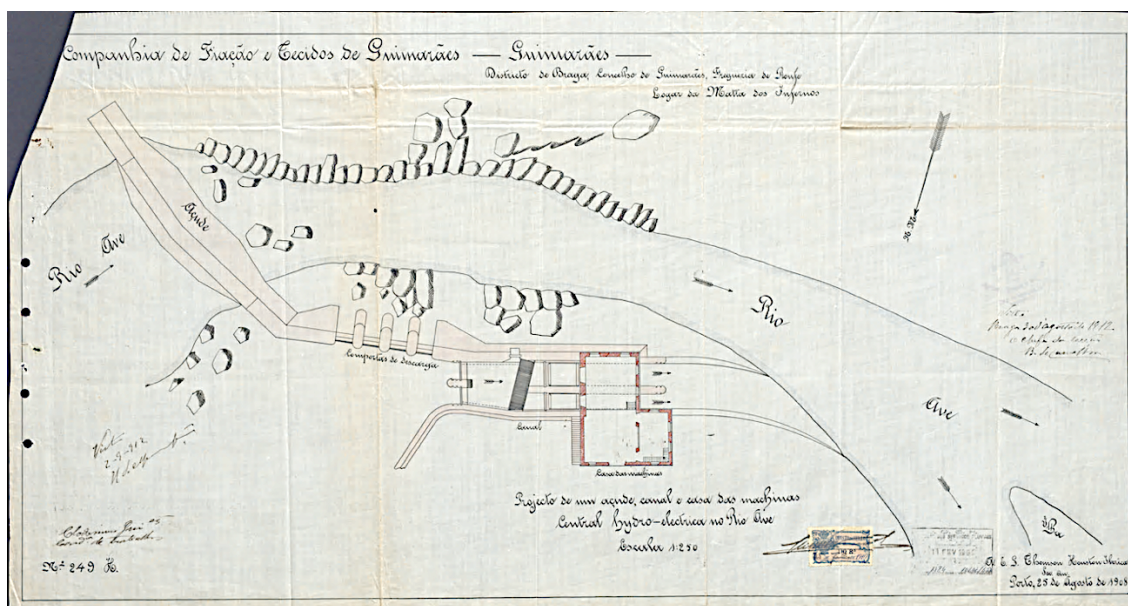 Companhia de Fiação e Tecidos de Guimarães — Guimarães —
Districto de Braga, Concelho de Guimarães, Freguezia de Ronfe
Logar da Matta dos Infernos
Açude
Rio Ave
N.M.
Rio
Ave
Comportas de descarga
Canal
Casa das machinas
Visto
2-9-912
Projecto de um açude, canal e casa das machinas
Central hydro-electrica no Rio Ave
Escala 1:250
Nº 249 H.
11 FEV
Thomson Houston Iberica
Porto, 25 de Agosto de 1908